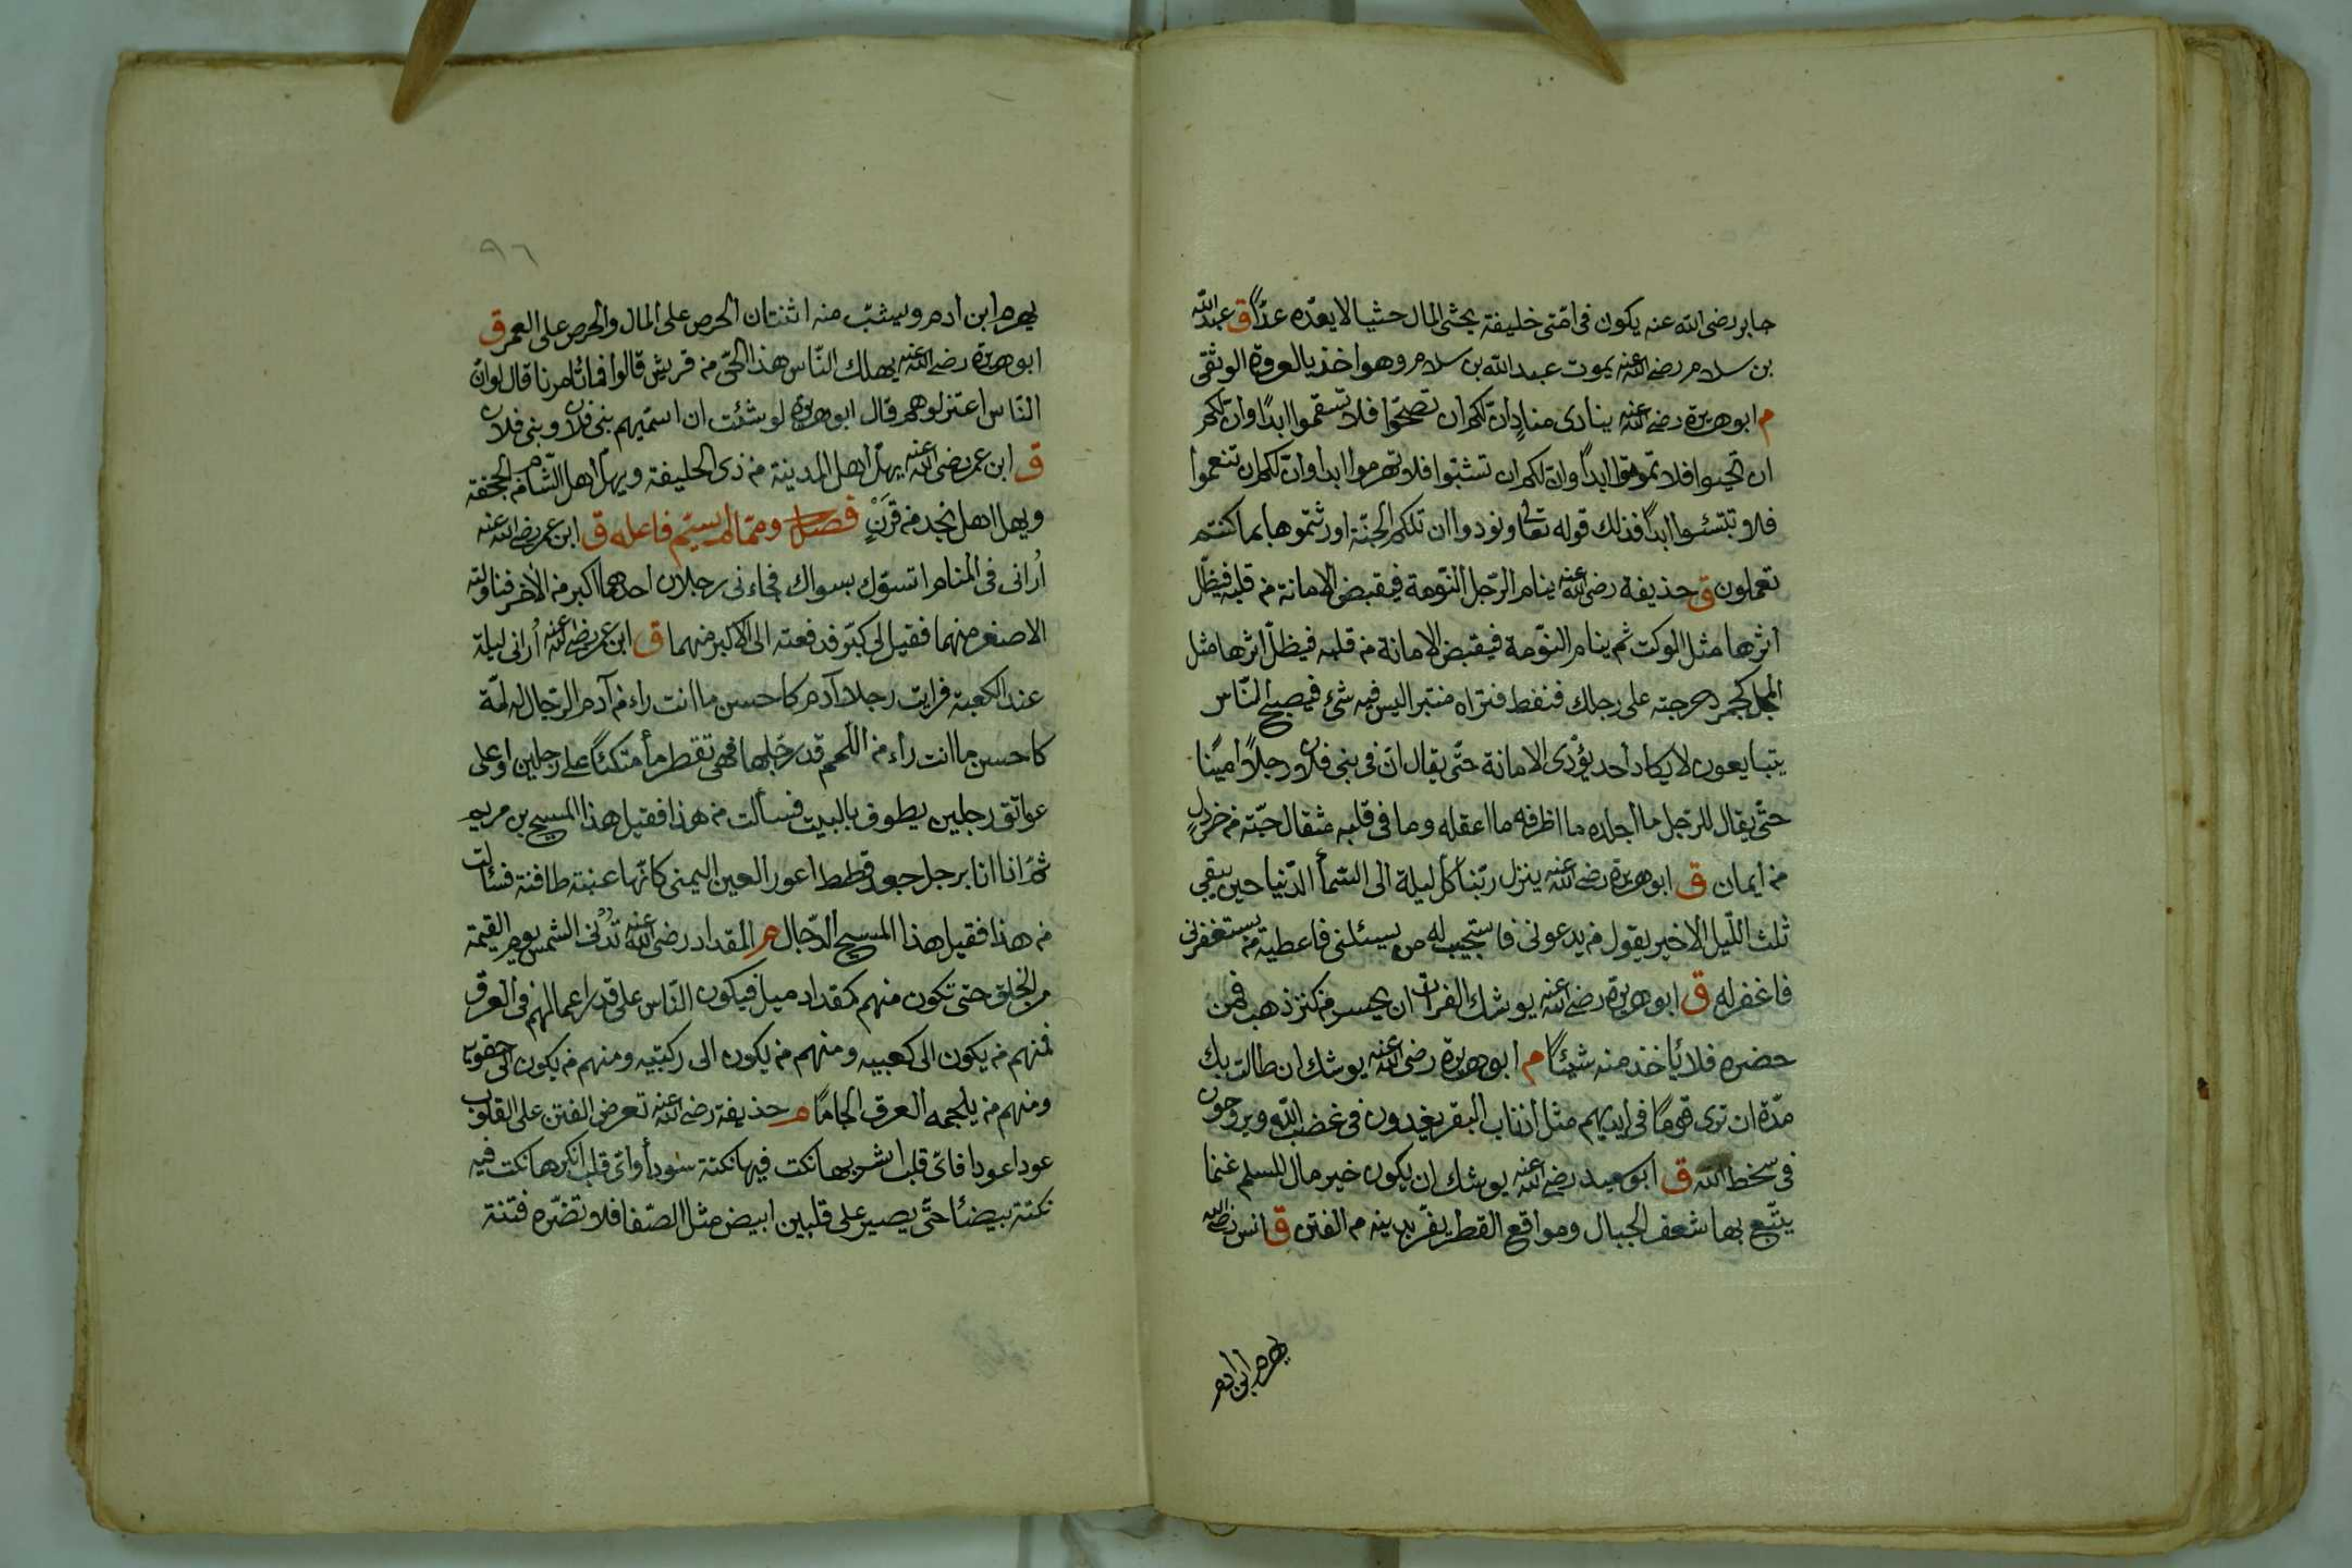 جابر رضى الله عنه يكون فى امّتى خليفة يحثى المال حثيا لا يعدّه عدّاً ق عبد الله
بن سلام رضى الله عنه يموت عبد الله بن سلام وهو اخذ بالعروة الوثقى
م ابو هريرة رضى الله عنه ينادى منادٍ ان لكم ان تصحّوا فلا تسقموا ابدًا وان لكم
ان تحيوا فلا تموتوا ابدًا وان لكم ان تشبّوا فلا تهرموا ابدا وان لكم ان تنعموا
فلا تبتئسوا ابدًا فذلك قوله تعالى ونودوا ان تلكم الجنّة اورثتموها بما كنتم
تعملون ق حذيفة رضى الله عنه ينام الرّجل النّومة فيقبض الامانة من قلبه فيظلّ
اثرها مثل الوكت ثم ينام النّومة فيقبض الامانة من قلبه فيظلّ اثرها مثل
المجل كجمر دحرجته على رجلك فنفط فتراه منتبرا ليس فيه شئ فيصبح النّاس
يتبايعون لا يكاد احد يؤدّى الامانة حتّى يقال انّ فى بنى فلان رجلاً امينًا
حتّى يقال للرّجل ما اجلده ما اظرفه ما اعقله وما فى قلبه مثقال حبّة من خردلٍ
من ايمان ق ابو هريرة رضى الله عنه ينزل ربّنا كل ليلة الى السّمأ الدّنيا حين يبقى
ثلث اللّيل الاخير يقول من يدعونى فاستجيب له من يسئلنى فاعطيه من يستغفرنى
فاغفر له ق ابو هريرة رضى الله عنه يوشك الفرات ان يحسر من كنز ذهب فمن
حضره فلا يأخذ منه شيئًا م ابو هريرة رضى الله عنه يوشك ان طالت بك
مدّة ان ترى قومًا فى ايديهم مثل اذناب البقر يغدون فى غضب الله ويروحون
فى سخط الله ق ابو سعيد رضى الله عنه يوشك ان يكون خير مال المسلم غنما
يتّبع بها شعف الجبال ومواقع القطر يفرّ بدينه من الفتن ق انس رضى الله
يهرم ابن ادم
٩٦
يهرم ابن ادم ويشبّ منه اثنتان الحرص على المال والحرص على العمر ق
ابو هريرة رضى الله عنه يهلك النّاس هذا الحىّ من قريش قالوا فما تأمرنا قال لو انّ
النّاس اعتزلوهم قال ابو هريرة لو شئت ان اسمّيهم بنى فلان وبنى فلان
ق ابن عمر رضى الله عنه يهلّ اهل المدينة من ذى الحليفة ويهلّ اهل الشّام من الجحفة
ويهل اهل نجد من قرَنٍ فصل وممّا لم يسمّ فاعله ق ابن عمر رضى الله عنه
اُرانى فى المنام اتسوّك بسواك فجاءنى رجلان احدهما اكبر من الأخر فناولته
الاصغر منهما فقيل لى كبّر فدفعته الى الاكبر منهما ق ابن عمر رضى الله عنه اُرانى ليلة
عند الكعبة فرايت رجلا آدم كاحسن ما انت راء من آدم الرّجال له لمّة
كاحسن ما انت راء من اللّمم قد رجّلها فهى تقطر مأ متكئًا على رجلين او على
عواتق رجلين يطوف بالبيت فسألت من هذا فقيل هذا المسيح بن مريم
ثم انا انا برجل جعد قطط اعور العين اليمنى كانّها عنبة طافئة فسئلت
من هذا فقيل هذا المسيح الدّجال م المقداد رضى الله عنه تُدْنى الشمس يوم القيمة
من الخلق حتى تكون منهم كمقداد ميل فيكون النّاس على قدر اعمالهم فى العرق
فمنهم من يكون الى كعبيه ومنهم من يكون الى ركبتيه ومنهم من يكون الى حقويه
ومنهم من يلجمه العرق الجامًا م حذيفة رضى الله عنه تعرض الفتن على القلوب
عودا عودا فاىّ قلب اشربها نكت فيها نكتة سودأ واىّ قلب انكرها نكت فيه
نكتة بيضأ حتّى يصير على قلبين ابيض مثل الصّفا فلا تضّره فتنة